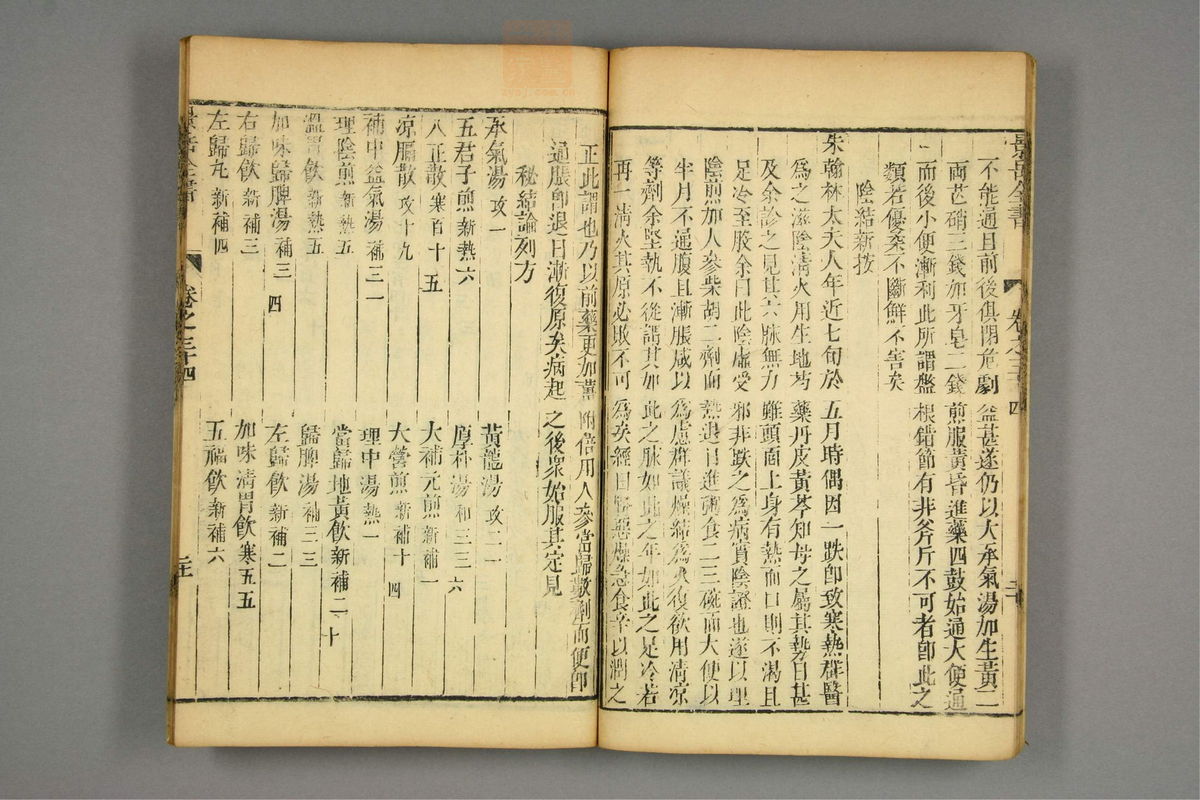 景岳全書
卷之三十四
不能通且前後俱閉危劇益甚遂仍以大承氣湯加生黃二
兩芒硝三錢加牙皂二錢煎服黃昏進藥四鼓始通大便通
而後小便漸利此所謂盤根錯節有非斧斤不可者卽此之
類若優柔不斷鮮不害矣
陰結新按
朱翰林太夫人年近七旬於五月時偶因一跌卽致寒熱群醫
爲之滋陰清火用生地芍藥丹皮黃芩知母之屬其勢日甚
及余診之見其六脉無力雖頭面上身有熱而口則不渴且
足冷至股余曰此陰虛受邪非跌之爲病實陰證也遂以理
陰煎加人參柴胡二劑而熱退日進粥食二三碗而大便以
半月不通腹且漸脹咸以爲慮群議燥結爲火復欲用清凉
等劑余堅執不從謂其如此之脉如此之年如此之足冷若
再一清火其原必敗不可爲矣經曰腎惡燥急食辛以潤之
正此謂也乃以前藥更加薑附倍用人參當歸數劑而便卽
通脹卽退日漸復原矣病起之後衆始服其定見
秘結論列方
承氣湯 攻一
黃龍湯 攻二一
五君子煎 新熱六
厚朴湯 和三三六
八正散 寒百十五
大補元煎 新補一
凉膈散 攻十九
大營煎 新補十四
補中益氣湯 補三一
理中湯 熱一
理陰煎 新熱五
當歸地黃飲 新補二十
溫胃飲 新熱五
歸脾湯 補三三
加味歸脾湯 補三四
左歸飲 新補二
右歸飲 新補三
加味清胃飲 寒五五
左歸丸 新補四
五福飲 新補六
景岳全書
卷之三十四